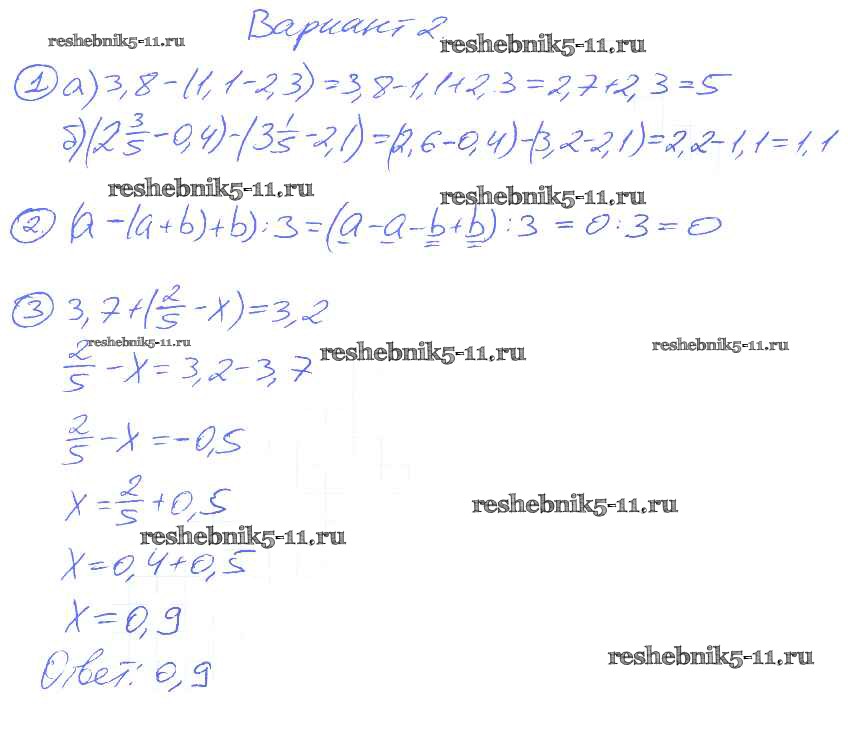 Вариант 2.
reshebnik5-11.ru
reshebnik5-11.ru
1 а) 3,8-(1,1-2,3)=3,8-1,1+2,3=2,7+2,3=5
б) (2 3/5 -0,4)-(3 1/5 -2,1)=(2,6-0,4)-(3,2-2,1)=2,2-1,1=1,1
reshebnik5-11.ru
reshebnik5-11.ru
2. (a-(a+b)+b):3=(a-a-b+b):3=0:3=0
3 3,7+(2/5 -x)=3,2
reshebnik5-11.ru
reshebnik5-11.ru
reshebnik5-11.ru
2/5 -x=3,2-3,7
2/5 -x=-0,5
x=2/5 +0,5
reshebnik5-11.ru
reshebnik5-11.ru
x=0,4+0,5
x=0,9
Ответ: 0,9
reshebnik5-11.ru